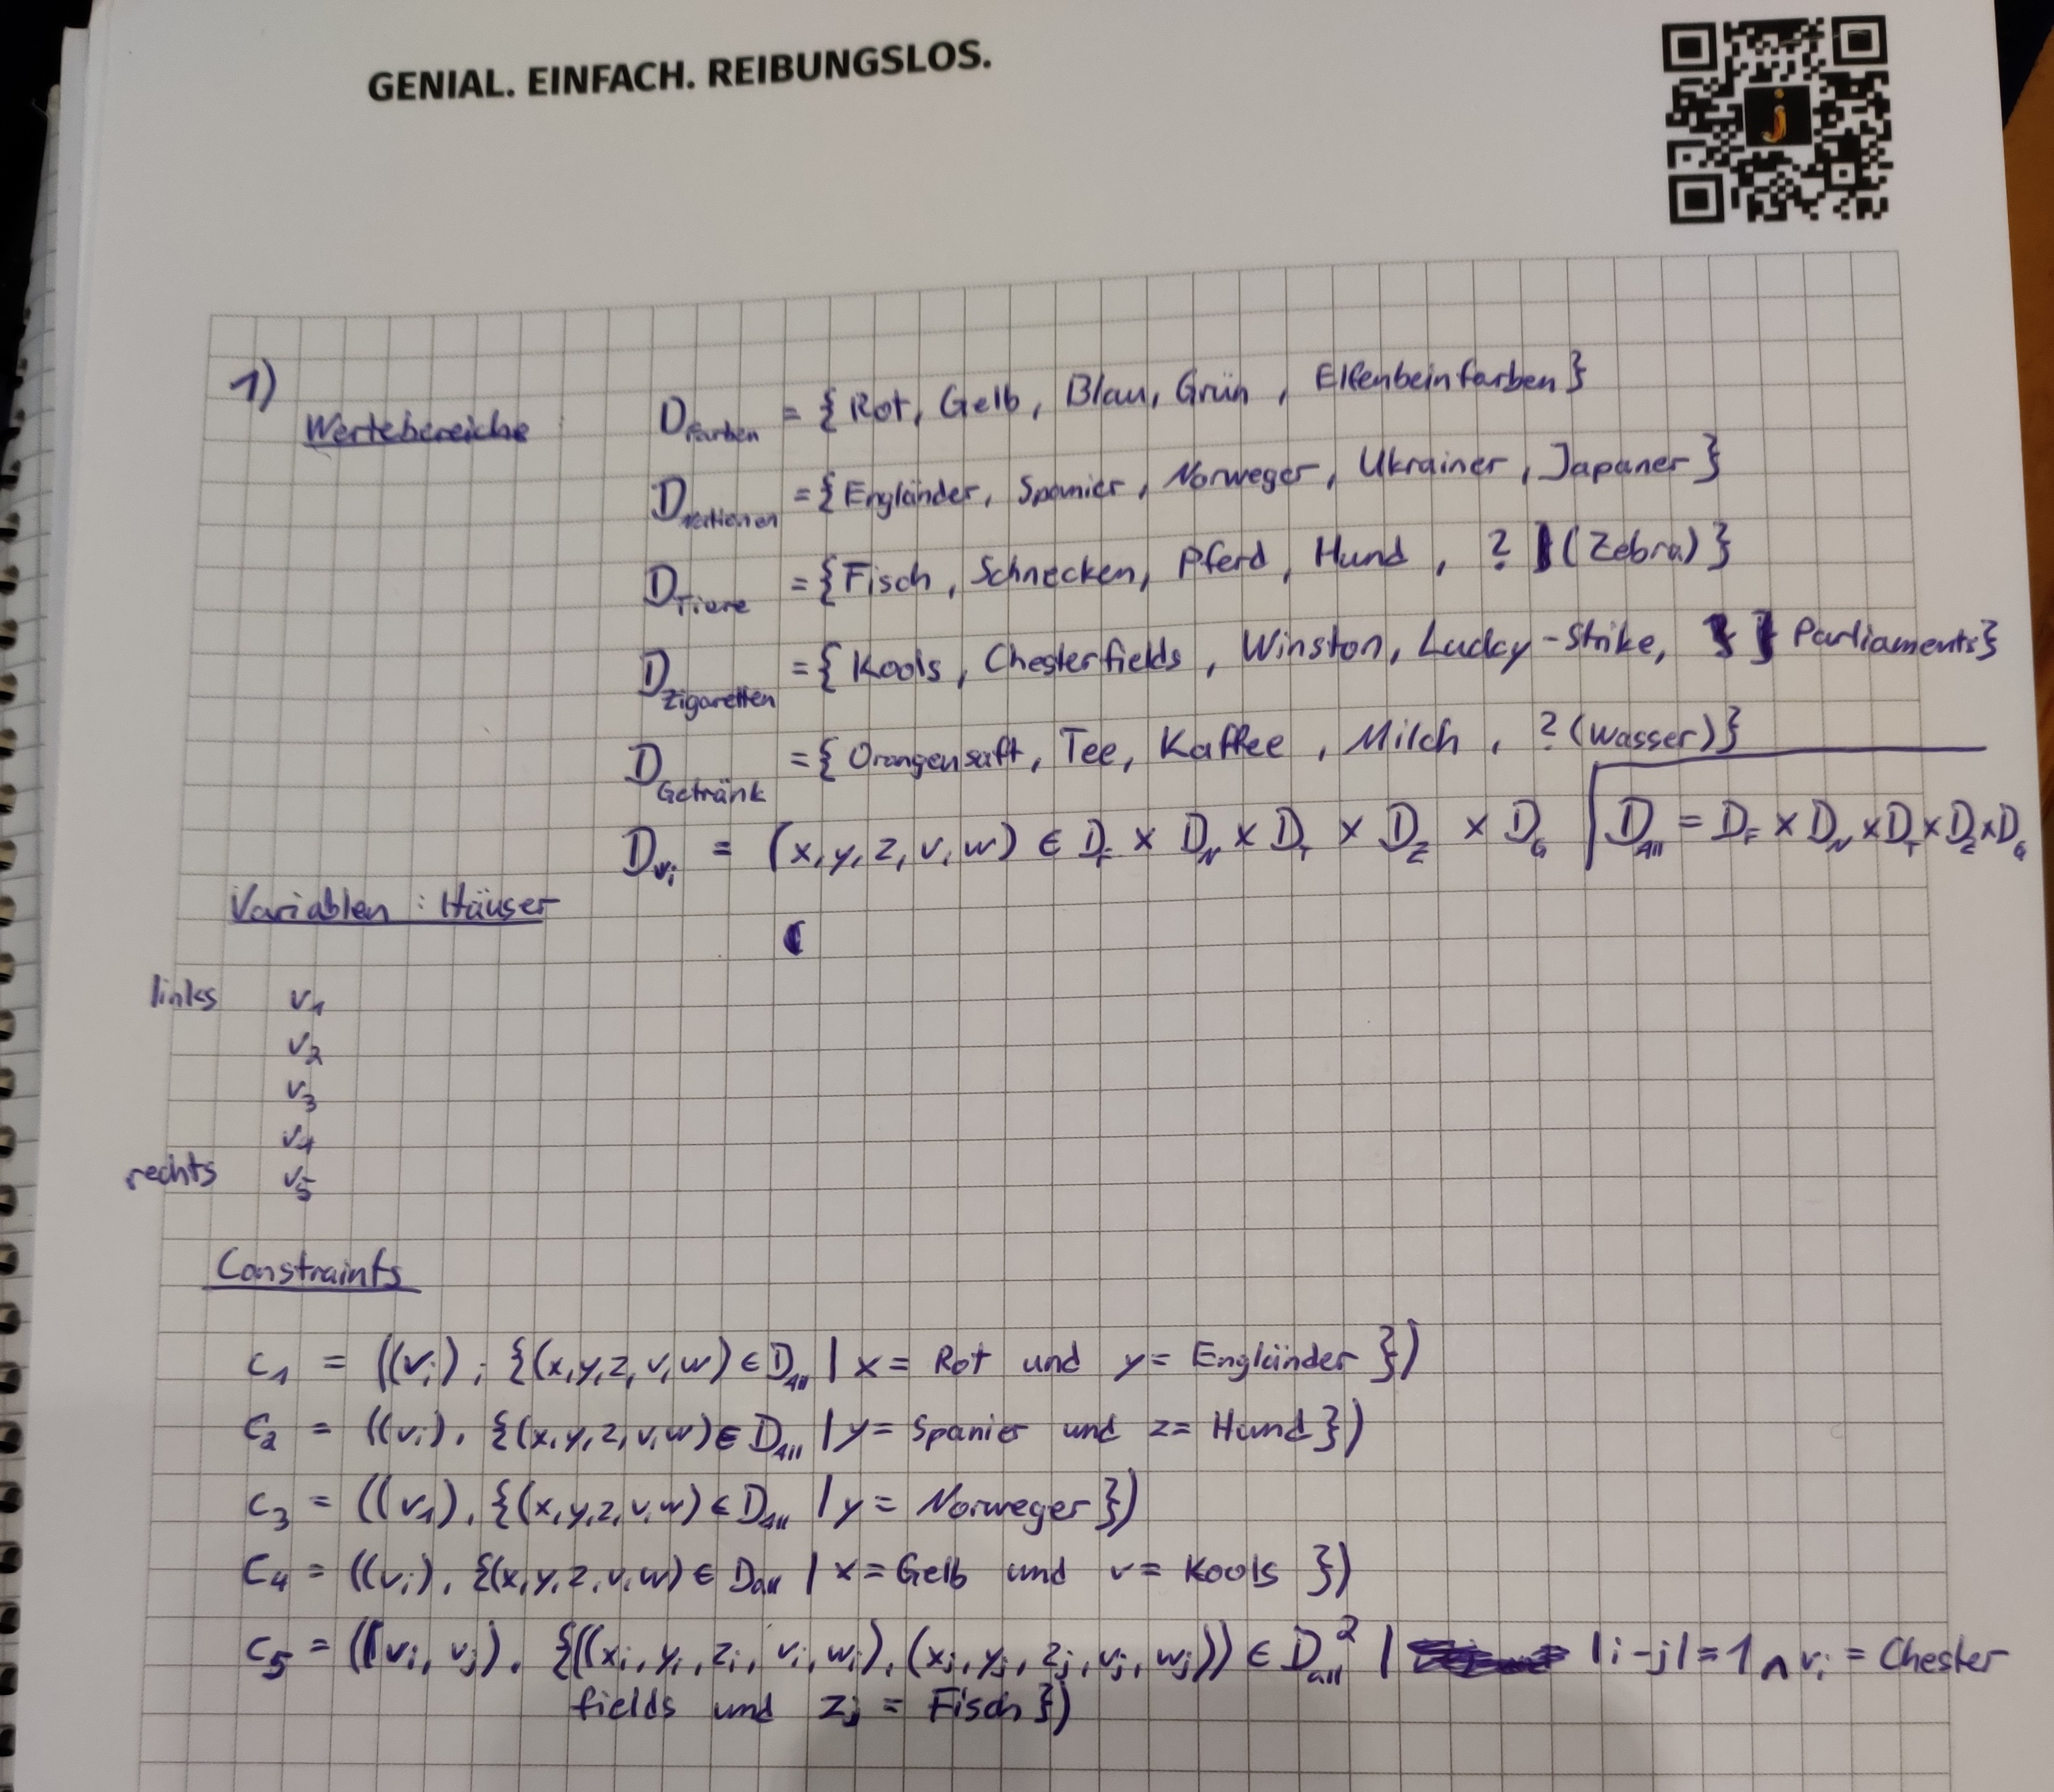 GENIAL. EINFACH. REIBUNGSLOS.
j
1)
Wertebereiche : D_Farben = {Rot, Gelb, Blau, Grün, Elfenbeinfarben}
D_Nationen = {Engländer, Spanier, Norweger, Ukrainer, Japaner}
D_Tiere = {Fisch, Schnecken, Pferd, Hund, ? (Zebra)}
D_Zigaretten = {Kools, Chesterfields, Winston, Lucky-Strike, Parliaments}
D_Getränk = {Orangensaft, Tee, Kaffee, Milch, ? (Wasser)}
D_vi = (x,y,z,v,w) ∈ D_F × D_N × D_T × D_Z × D_G | D_All = D_F × D_N × D_T × D_Z × D_G
Variablen : Häuser
links v1
v2
v3
v4
rechts v5
Constraints
c1 = ((vi), {(x,y,z,v,w) ∈ D_All | x = Rot und y = Engländer})
c2 = ((vi), {(x,y,z,v,w) ∈ D_All | y = Spanier und z = Hund})
c3 = ((v1), {(x,y,z,v,w) ∈ D_All | y = Norweger})
c4 = ((vi), {(x,y,z,v,w) ∈ D_all | x = Gelb und v = Kools})
c5 = ((vi, vj), {((xi, yi, zi, vi, wi), (xj, yj, zj, vj, wj)) ∈ D_all² | |i-j| = 1 ∧ vi = Chester
fields und zj = Fisch})